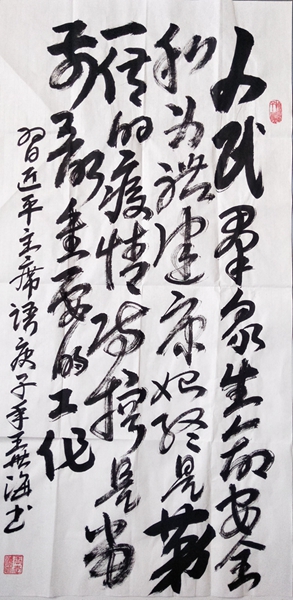 人民羣眾生命安全
和身體健康始终是第
一位的疫情防控是當
前最重要的工作
習近平主席語庚子年王海书